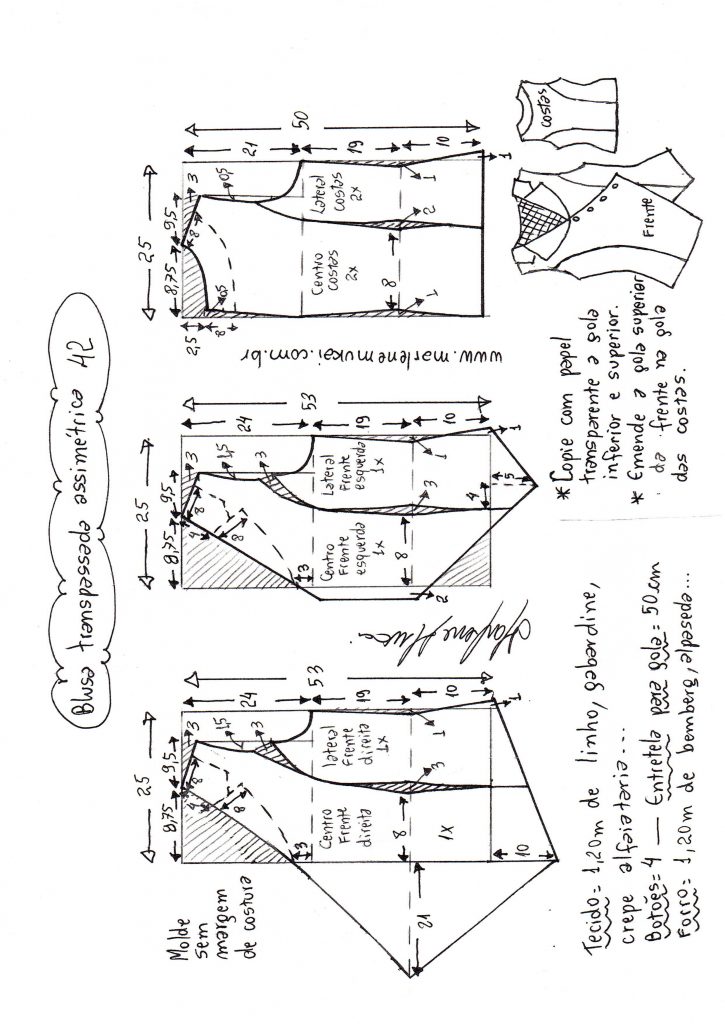 Blusa transpassada assimétrica 42
25
8,75
9,5
3
8
0,5
2,5
8
0,5
21
19
10
50
Centro
costas
2x
Lateral
costas
2x
8
1
2
1
1
www.marlenemukai.com.br
costas
Frente
25
8,75
9,5
3
8
1,5
3
4
8
24
19
10
53
3
Centro
Frente
esquerda
1x
Lateral
Frente
esquerda
1x
8
3
1
1
4
15
2
* Copie com papel
transparente a gola
inferior e superior.
* Emende a gola superior
da frente na gola
das costas.
25
8,75
9,5
3
8
1,5
3
4
8
24
19
10
53
3
Centro
Frente
direita
lateral
frente
direita
1x
8
3
1
1
1X
10
21
Molde
sem
margem
de costura
Marlene Mukai
Tecido= 1,20m de linho, gabardine,
crepe alfaiataria...
Botões= 4 — Entretela para gola= 50cm
Forro= 1,20m de bemberg, alpaseda...